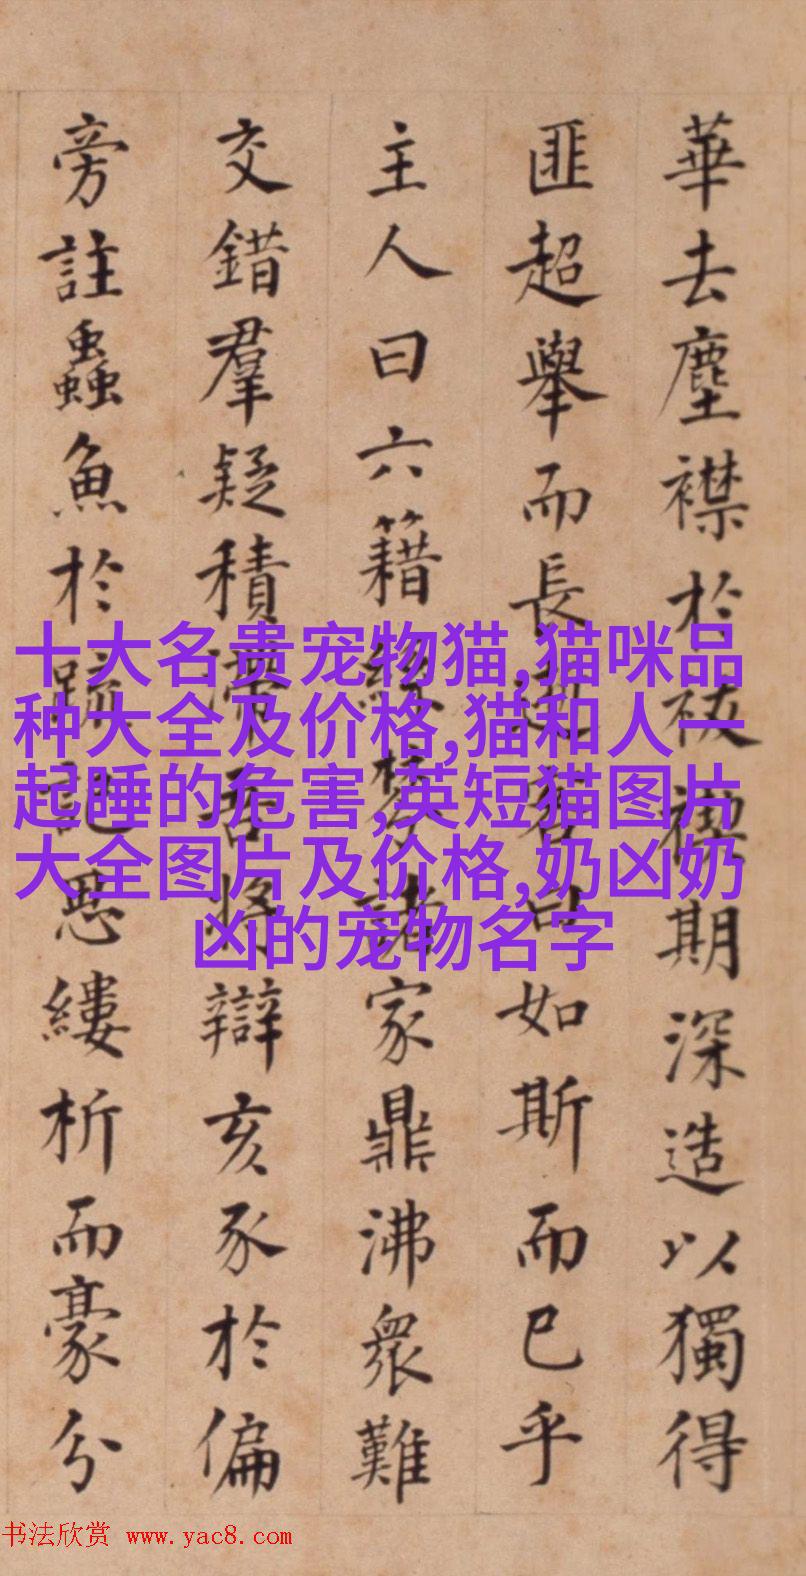 華去塵襟於祓禊期深造以獨得
匪超舉而長如斯而已乎
主人曰六籍紛拏諸家鼎沸眾難
交錯羣疑積滯吾將辯亥豕於偏
旁註蟲魚於疏記思縷析而豪分
十大名贵宠物猫,猫咪品
种大全及价格,猫和人一
起睡的危害,英短猫图片
大全图片及价格,奶凶奶
凶的宠物名字
书法欣赏 www.yac8.com